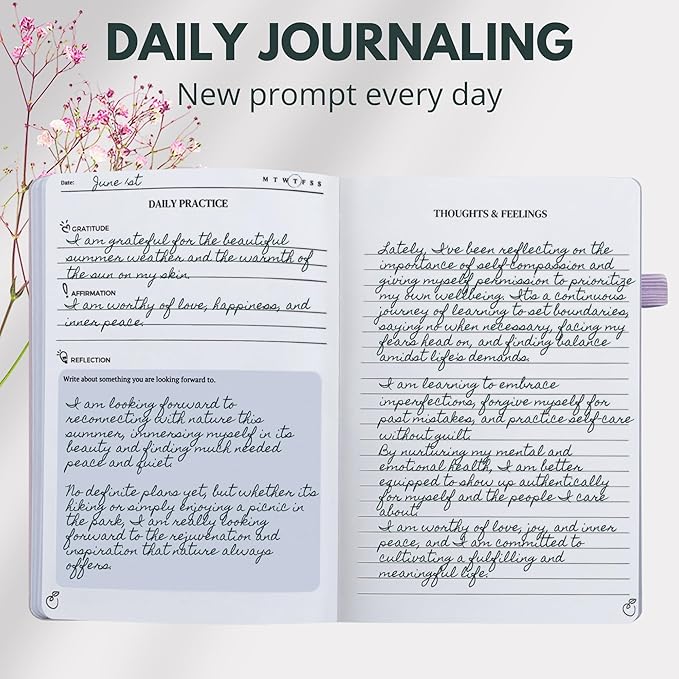 DAILY JOURNALING
New prompt every day
Date: June 1st
M T W T F S S
DAILY PRACTICE
GRATITUDE
I am grateful for the beautiful
summer weather and the warmth of
the sun on my skin.
AFFIRMATION
I am worthy of love, happiness, and
inner peace.
REFLECTION
Write about something you are looking forward to.
I am looking forward to
reconnecting with nature this
summer, immersing myself in its
beauty and finding much needed
peace and quiet.
No definite plans yet, but whether its
hiking or simply enjoying a picnic in
the park, I am really looking
forward to the rejuvenation and
inspiration that nature always
offers.
THOUGHTS & FEELINGS
Lately, I've been reflecting on the
importance of self-compassion and
giving myself permission to prioritize
my own wellbeing. It's a continuous
journey of learning to set boundaries,
saying no when necessary, facing my
fears head on, and finding balance
amidst life's demands.
I am learning to embrace
imperfections, forgive myself for
past mistakes, and practice self-care
without guilt.
By nurturing my mental and
emotional health, I am better
equipped to show up authentically
for myself and the people I care
about.
I am worthy of love, joy, and inner
peace, and I am committed to
cultivating a fulfilling and
meaningful life.